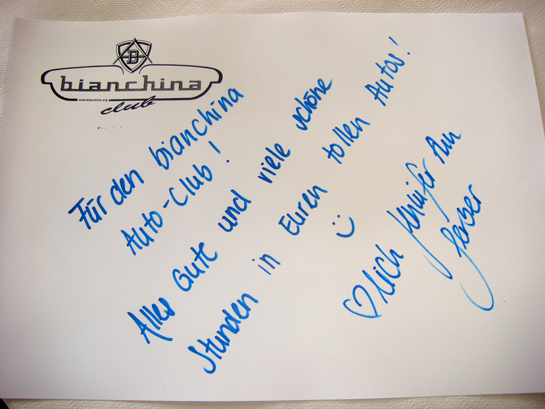 B
bianchina
www.bianchina.org
club
Für den bianchina
Auto-Club!
Alles Gute und viele schöne
Stunden in Euren tollen Autos!
♡lich Jennifer Ann